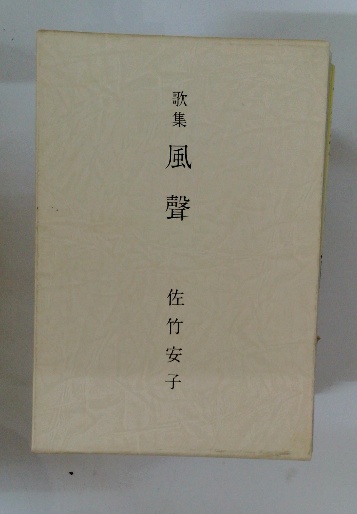 歌集 風聲 佐竹安子